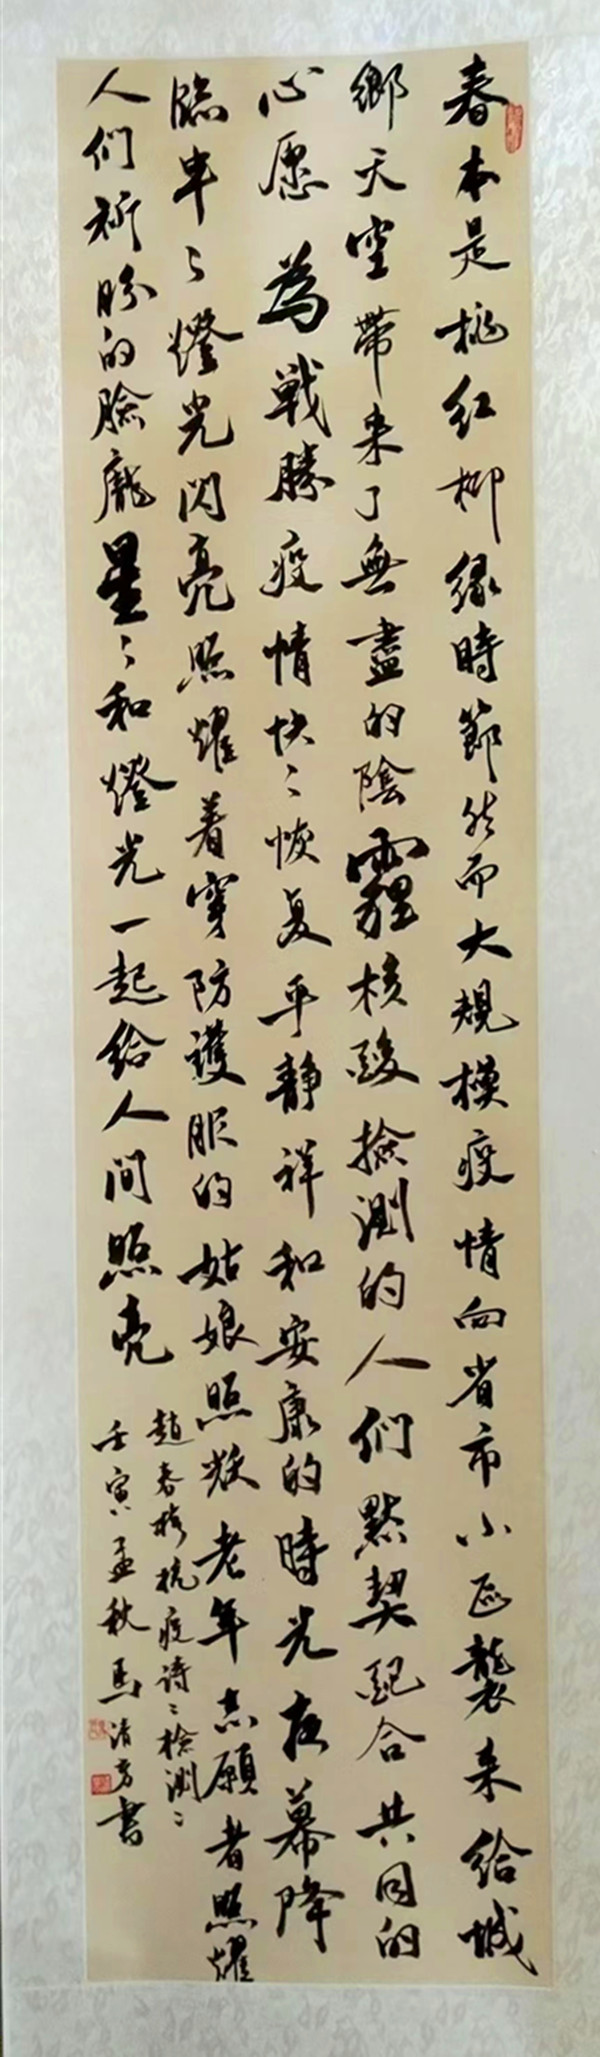 春本是桃红柳绿時節然而大規模疫情向省市小区襲来给城
鄉天空帶来了無盡的陰霾核酸撿測的人们默契配合共同的
心愿為戰勝疫情快〻恢复平静祥和安康的時光夜幕降
臨串〻燈光閃亮照耀着穿防護服的姑娘照料老年志願者照耀
人们祈盼的臉龐星〻和燈光一起给人间照亮
趙春 抗疫诗〻檢測〻
壬寅孟秋馬清方書